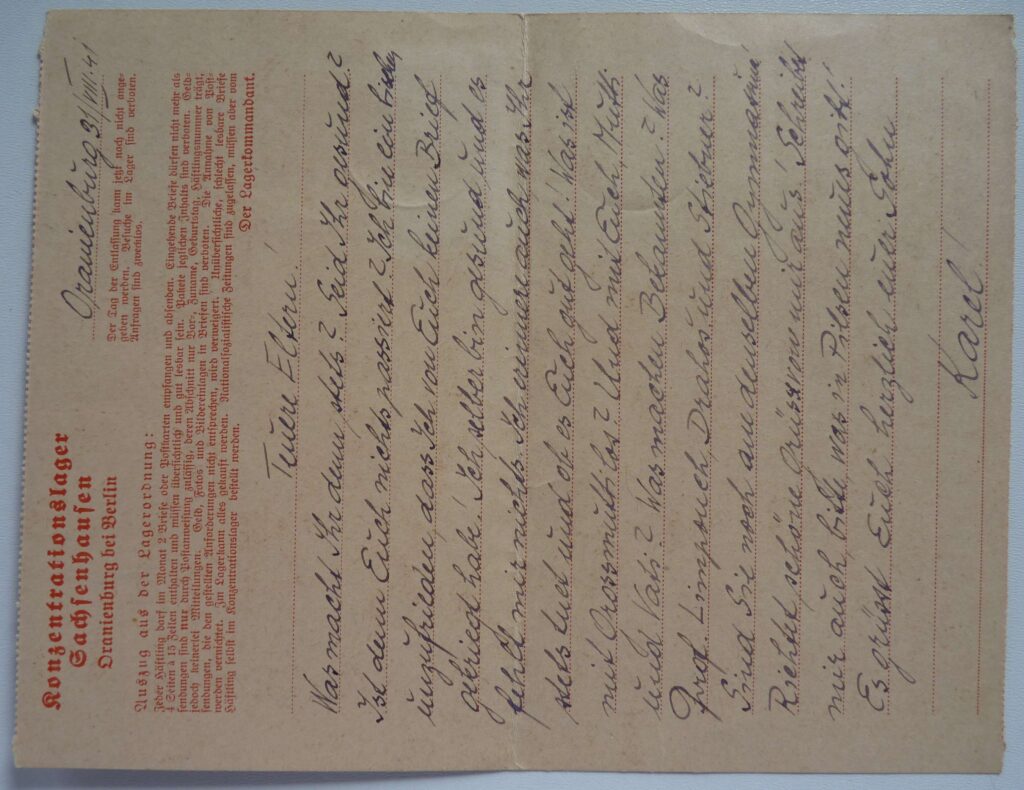 Konzentrationslager
Sachsenhausen
Oranienburg bei Berlin
Oranienburg 31/VIII.41
Der Tag der Entlassung kann jetzt noch nicht ange-
geben werden. Besuche im Lager sind verboten.
Anfragen sind zwecklos.
Auszug aus der Lagerordnung:
Jeder Häftling darf im Monat 2 Briefe oder Postkarten empfangen und absenden. Eingehende Briefe dürfen nicht mehr als
4 Seiten à 15 Zeilen enthalten und müssen übersichtlich und gut lesbar sein. Pakete jeglichen Inhalts sind verboten. Geld-
sendungen sind nur durch Postanweisung zulässig, deren Abschnitt nur Vor-, Zuname, Geburtstag, Häftlingsnummer trägt,
jedoch keinerlei Mitteilungen. Geld, Fotos und Bildereinlagen in Briefen sind verboten. Die Annahme von Post-
sendungen, die den gestellten Anforderungen nicht entsprechen, wird verweigert. Unübersichtliche, schlecht lesbare Briefe
werden vernichtet. Im Lager kann alles gekauft werden. Nationalsozialistische Zeitungen sind zugelassen, müssen aber vom
Häftling selbst im Konzentrationslager bestellt werden.
Der Lagerkommandant.
Teuere Eltern.
Was macht Ihr denn stets? Seid Ihr gesund?
Ist denn Euch nichts passiert? Ich bin ein
unzufrieden, dass Ich von Euch keinen Brief
gekriegt habe! Ich selber bin gesund und es
fehlt mir nichts. Ich erinnere auch was Ihr
stets tud und ob es Euch gut geht! Was ist
mit Grossmutti los? Und mit Euch Mutti
und Vati? Was machen Bekannten? Was
Prof. Limpouch, Drahos und Stiebner?
Sind Sie noch am denselben Gymnasium
Richtet schöne Grüsse von mir aus! Schreibt
mir auch, bitte, was in Pilsen neues gibt!
Es grüsst Euch herzlich euer Sohn
Karel.